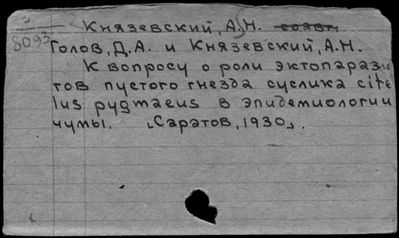 Князевский, А.Н. соавт.
8093
Голов, Д.А. и Князевский, А.Н.
К вопросу о роли эктопарази
тов пустого гнезда суслика cite
lus pygmaeus в эпидемиологии
чумы. „Саратов, 1930„.
к